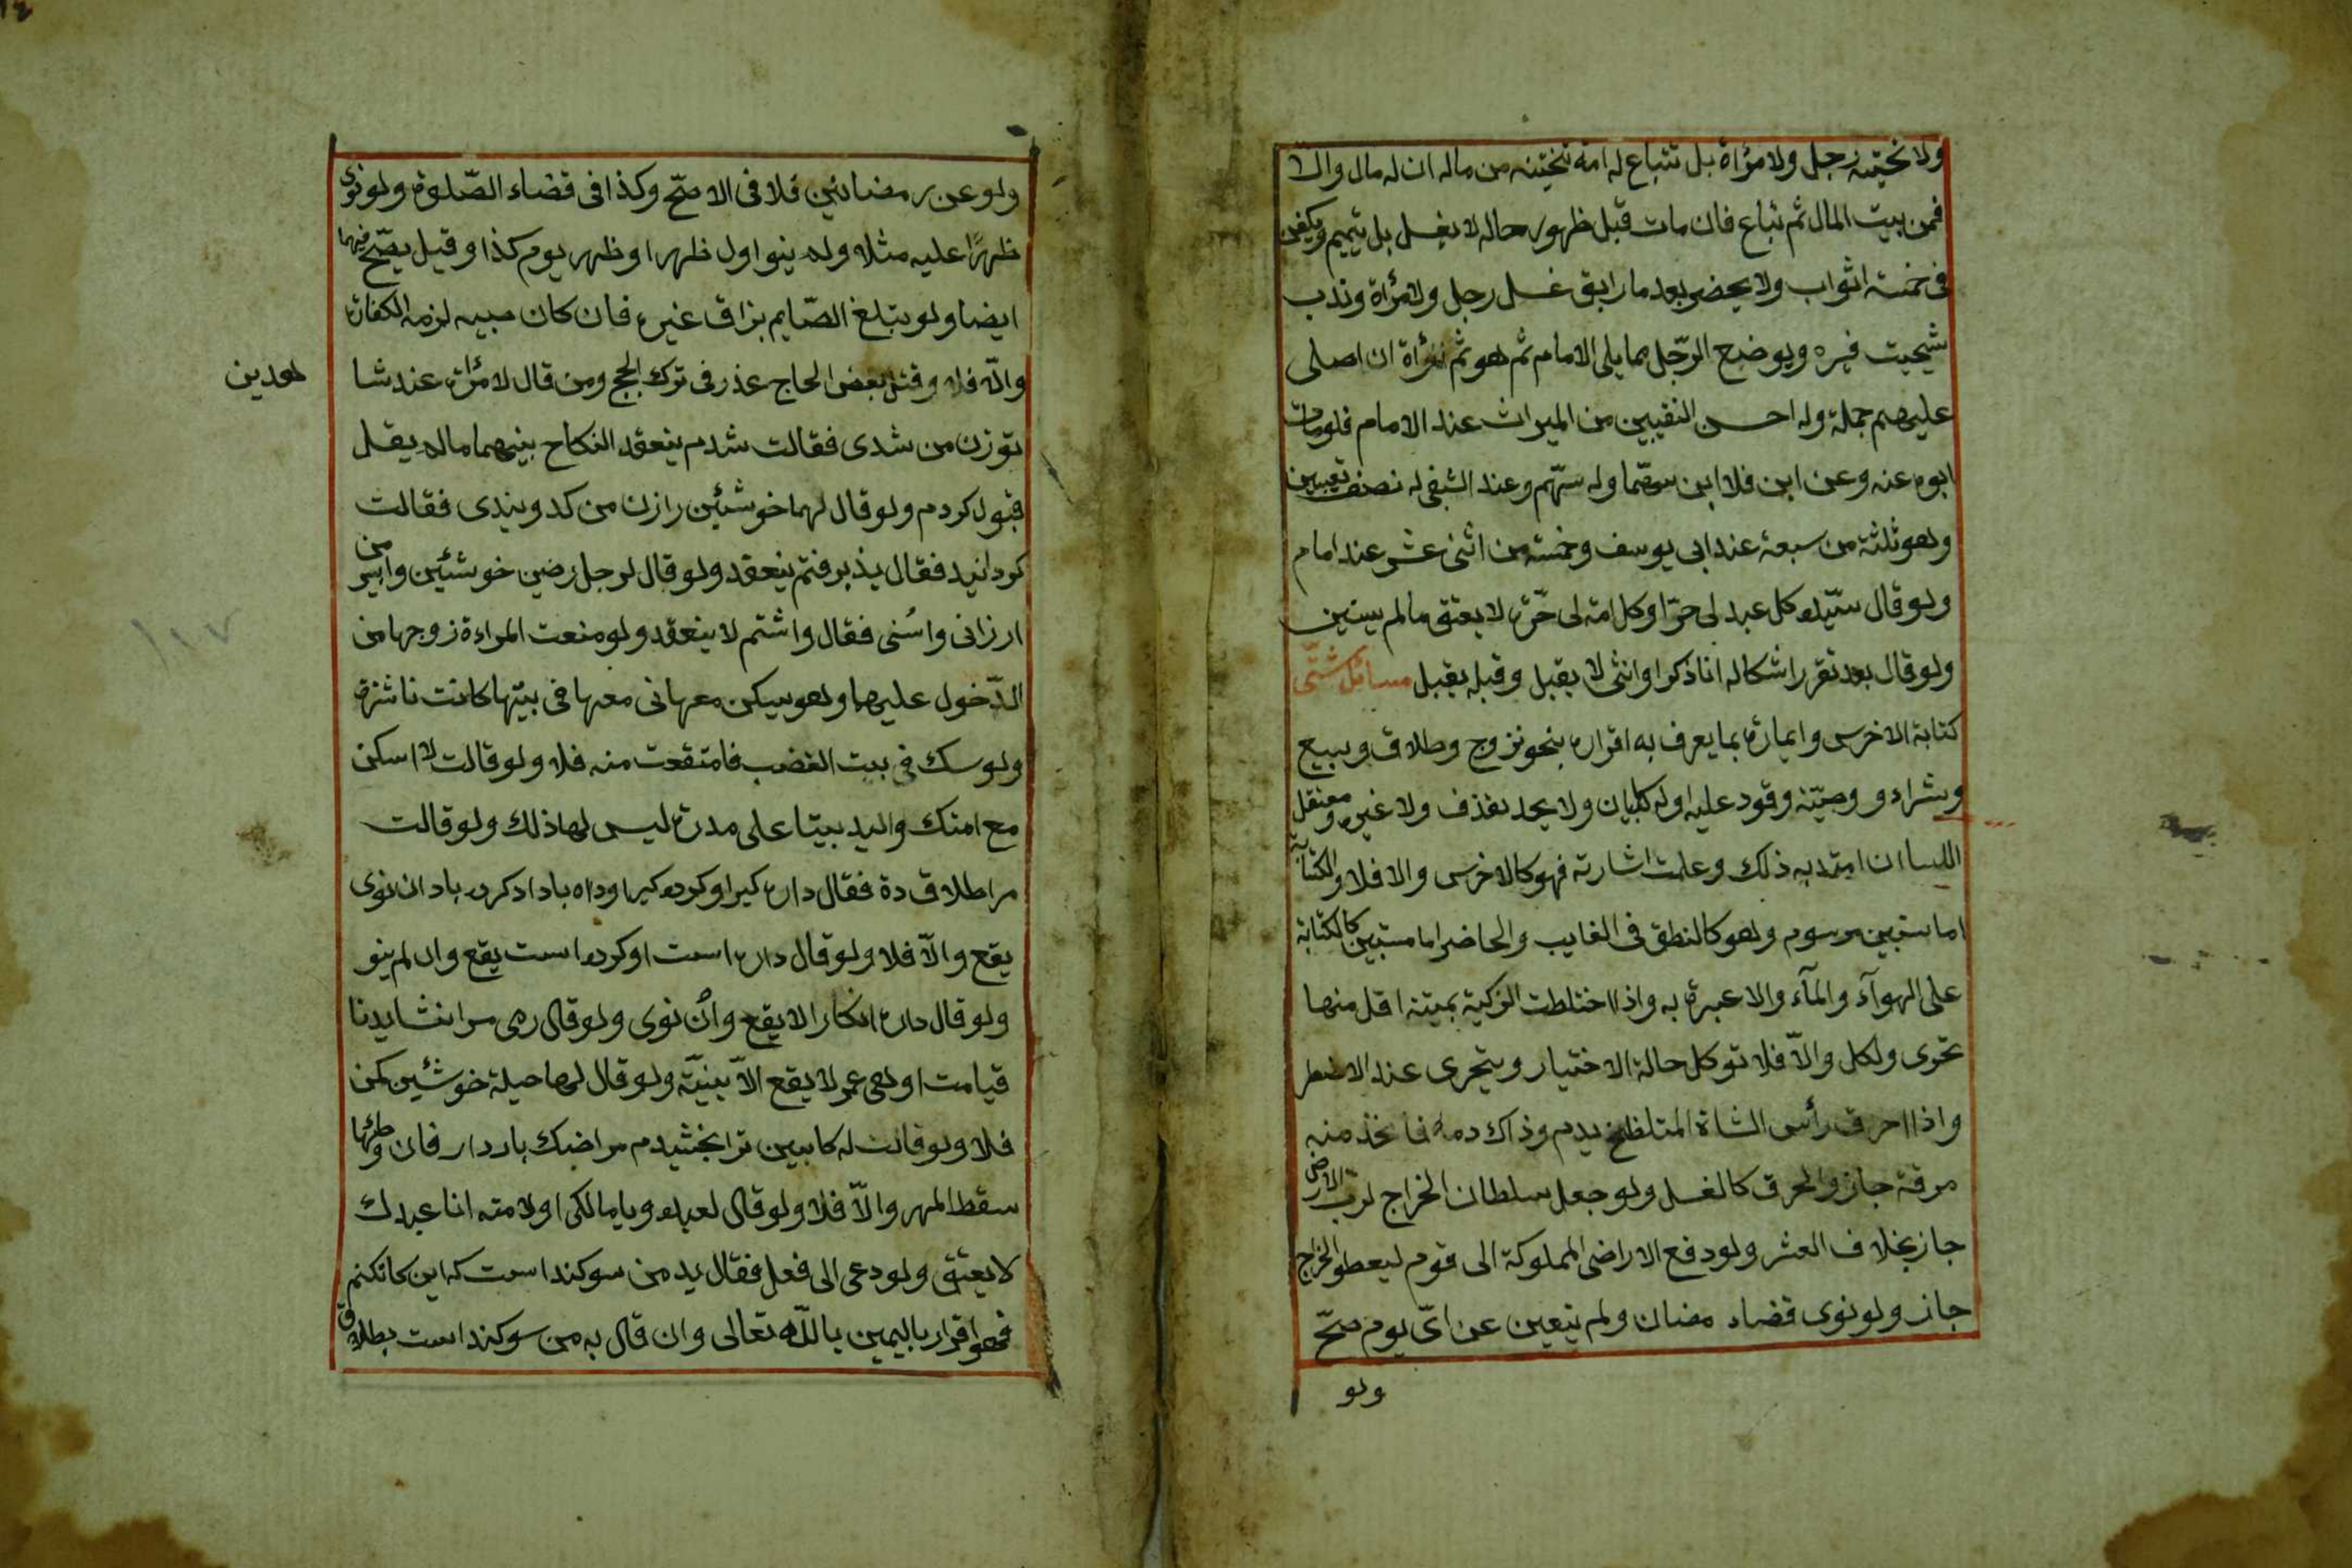 ولا تختنه رجل ولا مرأة بل تتباع له امة تختنه من ماله ان له مال والا
فمن بيت المال ثم تباع فان مات قبل ظهور حاله لا يغسل بل يتيمم ويكفن
فى خمسة اثواب ولا يحضر بعد ما رابق غسل رجل ولا مرأة وندب
تسجيت قبره ويوضع الرّجل مما يلى الامام ثم هو ثم مرأة ان اصلى
عليهم جملة وله احسن النقيبين من الميراث عند الامام فلو مات
ابوه عنه وعن ابن فلابن سهما وله سهم وعند الشعبى له نصف نصيبين
وهو ثلثة من سبعة عند ابى يوسف وخمسة من اثنى عشر عند امام
ولو قال سيّده كل عبد لى حرّ او كل امة لى حرّة لا يعتق مالم يستبن
ولو قال بعد تقرر اشكاله انا ذكر او انثى لا يقبل وقبله يقبل مسائل شتّى
كتابة الاخرس وايماؤه بما يعرف به اقراره بنحو تزوج وطلاق وبيع
وشراء و وصيّته وقود عليه او له كالبيان ولا يحد بقذف ولا غيره ومعتقل
اللسا ان امتد به ذلك وعلمت اشارته فهو كالاخرس والا فلا والكتابة
اما مستبين مرسوم وهو كالنطق فى الغايب والحاضر اما مستبين كالكتابة
على الهوآء والمآء والا عبرة به واذا اختلطت الزكية بميتة اقل منها
تحرى ولكل والاّ فلا توكل حالة الاختيار ويتحرى عند الاضطر
واذا احرق رأس الشاة المتلطخ بدم وذاك دمه فاتخذ منه
مرقة جاز والحرق كالغسل ولو جعل سلطان الخراج لرب الارض
جاز بخلاف العشر ولو دفع الاراضى المملوكة الى قوم ليعطو الخراج
جاز ولو نوى قضاء مضان ولم يتعين عن اىّ يوم صحّ
ولو
ولو عن رمضانين فلا فى الاصحّ وكذا فى قضاء الصّلوة ولو نوى
ظهرًا عليه مثلا ولم ينو اول ظهر او ظهر يوم كذا وقيل يصّح فيهما
ايضا ولو بتلغ الصّايم بزاق غيره فان كان حبيبه لزمه الكفارة
والاّ فلا وقتل بعض الحاج عذر فى ترك الحج ومن قال لامرأة عند شا
لعدين
تو زن من شدى فقالت شدم ينعقد النكاح بينهما ماله يقل
قبول كردم ولو قال لها خوشئين را زن من كد ويندى فقالت
كردانيد فقال پذيرفتم ينعقد ولو قال لرجل رضين خوشئين وا بپسر من
ارزانى واشنى فقال واشتم لا ينعقد ولو منعت المراءة زوجها من
الدّخول عليها وهو سيكن معها نى معها فى بيتها كانت ناشزة
ولو سك فى بيت الغضب فامتقعت منه فلا ولو قالت لا اسكن
مع امتك واليد بيتا على مدرة ليس لها ذلك ولو قالت
مرا طلاق ده فقال داره كير او كرده كير او داه باد او كرده باد ان نوى
يقع والاّ فلا ولو قال داره است او كرده است يقع وان لم ينو
ولو قال داره انكار لا يقع وان نوى ولو قال رهى مرا نشايد تا
قيامت او هى عمر لا يقع الاّ بنيّة ولو قال لها حيلة خوشئين كن
فلا ولو قالت له كابين ترا بخشيدم مرا ضبك باردار فان وطئها
سقط المهر والاّ فلا ولو قال لعبده ويا مالكى او لامته انا عبدك
لا يعتق ولو دعى الى فعل فقال يد من سوكند است كه اين كا نكنم
فهو اقرار باليمين بالله تعالى وان قال به من سوكند است بطلاق